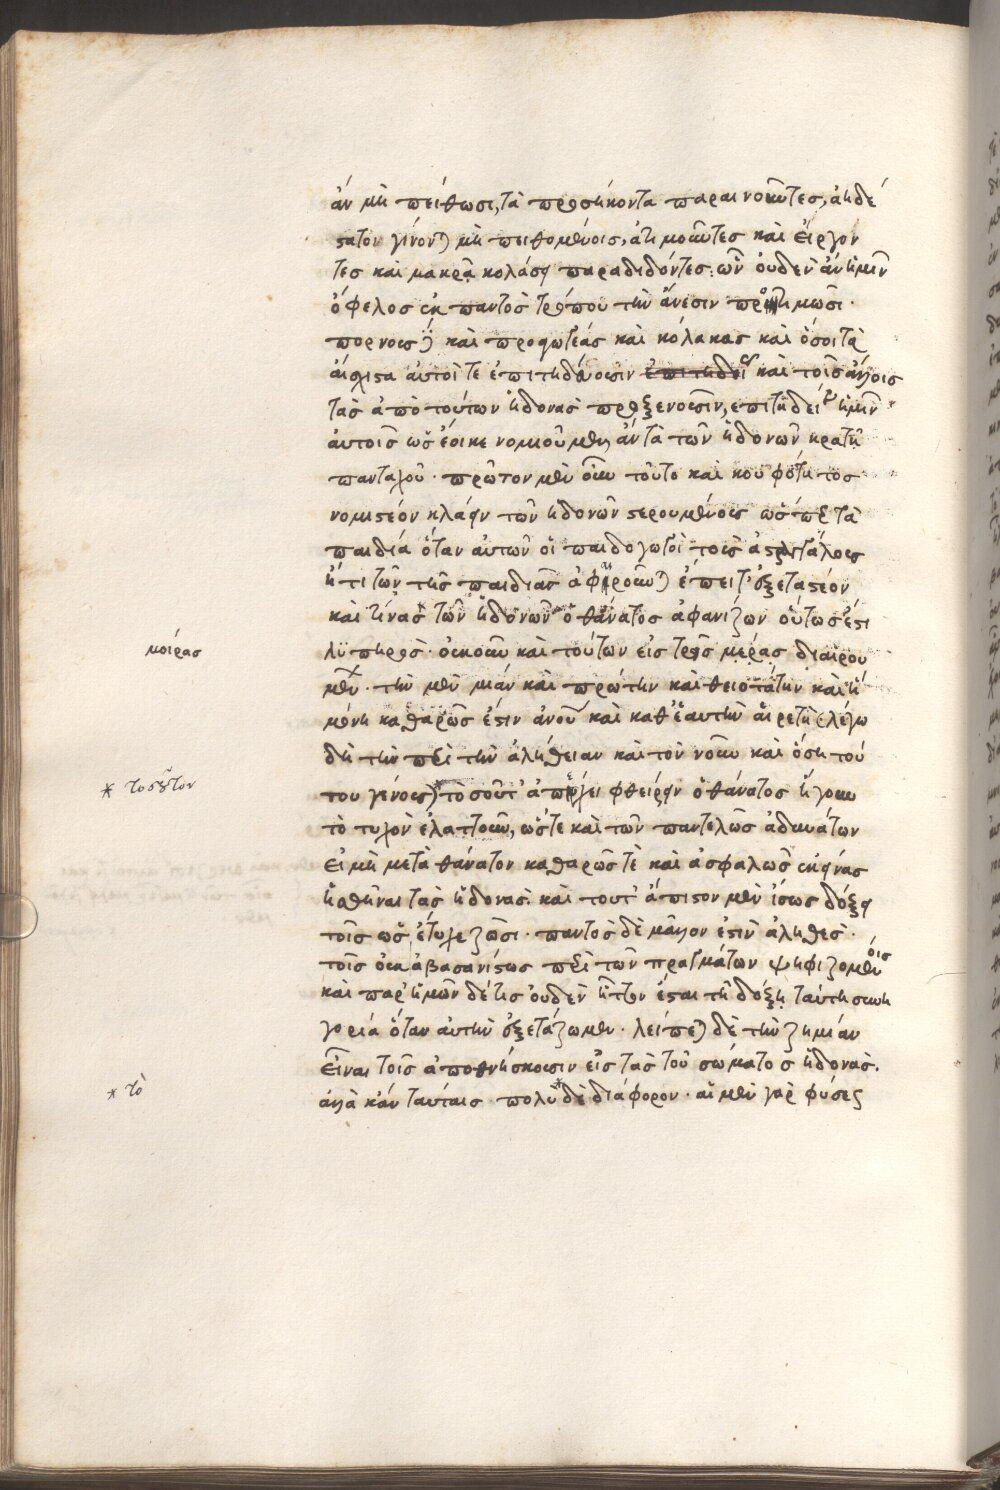 ἂν μὴ πείθωσι, τὰ προσήκοντα παραινοῦντες, ἀηδέ
στατον γίνονται μὴ πειθομένοις, ἀτιμοῦντες καὶ εἴργον
τες καὶ μακρᾷ κολάσει παραδιδόντες. ὧν οὐδὲν ἂν ἡμῖν
ὄφελος ἐκ παντὸς τρόπου τὴν ἄνεσιν προτιμῶσι.
καὶ κόλακας καὶ ὅσοι τὰ
αἴσχιστα αὐτοί τε ἐπιτηδεύουσιν καὶ τοῖς ἄλλοις
τὰς ἀπὸ τούτων ἡδονὰς προξενοῦσιν, ἡμῖν
αὐτοῖς ὡς ἔοικε νομιοῦμεν, ἂν τὰ τῶν ἡδονῶν κρατῇ
πανταχοῦ. πρῶτον μὲν οὖν τοῦτο καὶ κουφότητος
νομιστέον κλάειν τῶν ἡδονῶν στερουμένους ὥσπερ τὰ
παιδία ὅταν αὐτῶν οἱ παιδαγωγοὶ τοὺς ἀστραγάλους
ἤ τι τῶν τῆς παιδιᾶς ἀφαιροῦνται ἔπειτ' ἐξεταστέον
καὶ τίνας τῶν ἡδονῶν ὁ θάνατος ἀφανίζων οὕτως ἐστὶ
λυπηρός. οὐκοῦν καὶ τούτων εἰς τρεῖς μέρας διαιρου
μένων. τὴν μὲν μίαν καὶ πρώτην καὶ θειοτάτην καὶ ἣ
μόνη καθαρῶς ἐστιν ἀνοῦ καὶ καθ' ἑαυτὴν αἱρετὴ (λέγω
δὴ τὴν περὶ τὴν ἀλήθειαν καὶ τὸν νοῦν καὶ ὅση τού
του γένους) *τοσοῦτ' ἀπέχει φθείρειν ὁ θάνατος ἤγουν
τὸ τυχὸν ἐλαττοῦν, ὥστε καὶ τῶν παντελῶς ἀδυνάτων
εἰ μὴ μετὰ θάνατον καθαρῶς τὲ καὶ ἀσφαλῶς ἐκείνας
ἡσθῆναι τὰς ἡδονάς. καὶ τοῦτ' ἄπιστον μὲν ἴσως δόξει
τοῖς ὡς ἔτυχε ζῶσι. παντὸς δὲ μᾶλλον ἐστὶν ἀληθές.
τοῖς οὐκ ἀβασανίστως περὶ τῶν πραγμάτων ψηφιζομένοις
καὶ παρ' ἡμῶν δέ τις οὐδὲν ἧττον ἔσται τῇ δόξῃ ταύτῃ συνη
γορία ὅταν αὐτὴν ἐξετάζωμεν. λείπεται δὲ τὴν ζημίαν
εἶναι τοῖς ἀποθνήσκουσιν εἰς τὰς τοῦ σώματος ἡδονάς.
ἀλλὰ κἂν ταύταις πολὺ *δὲ διάφορον. αἱ μὲν γὰρ φύσει
μοίρας
* τοσοῦτον
* τὸ